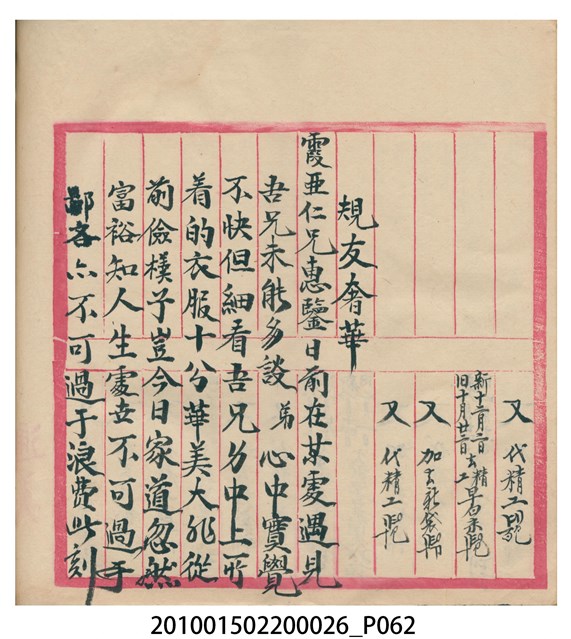 又 代精工
新十二月二日
旧十月廿二日
又 加
又 代精工
規友奢華
霞亜仁兄惠鑒日前在某處遇見
吾兄未能多談弟心中實覺
不快但細看吾兄身中上所
着的衣服十分華美大非從
前儉樸子豈今日家道忽然
富裕知人生處世不可過于
鄙吝亦不可過于浪費此刻
201001502200026_P062